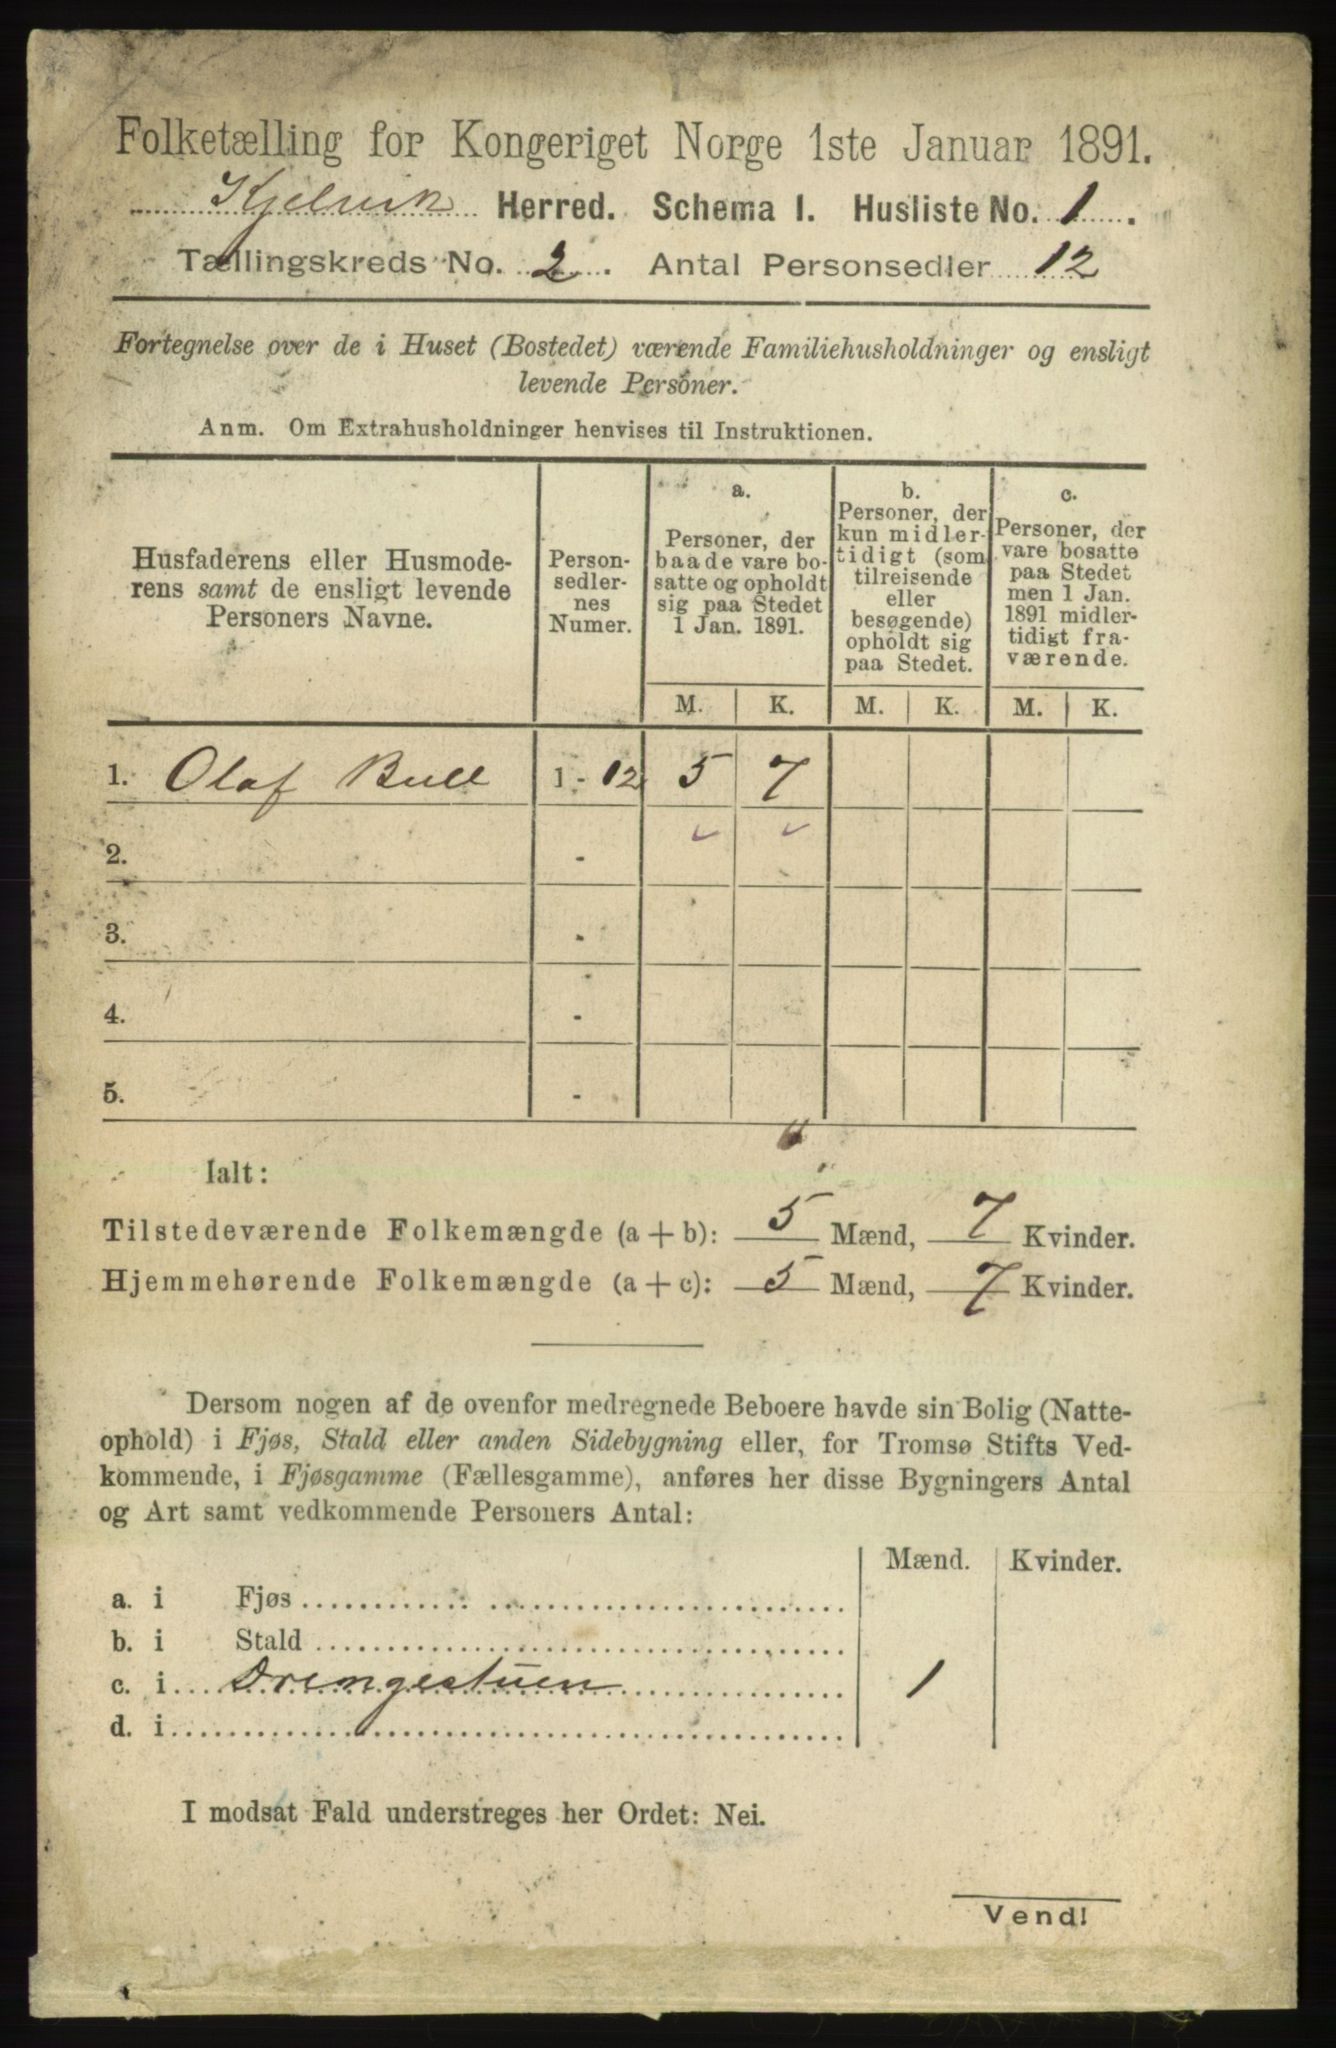 Folketælling for Kongeriget Norge 1ste Januar 1891.
Kjelvik Herred. Schema I. Husliste No. 1.
Tællingskreds No. 2. Antal Personsedler 12
Fortegnelse over de i Huset (Bostedet) værende Familiehusholdninger og ensligt
levende Personer.
Anm. Om Extrahusholdninger henvises til Instruktionen.
Husfaderens eller Husmode-
rens samt de ensligt levende
Personers Navne.
Person-
sedler-
nes
Numer.
a.
Personer, der
baade vare bo-
satte og opholdt
sig paa Stedet
1 Jan. 1891.
b.
Personer, der
kun midler-
tidigt (som
tilreisende
eller
besøgende)
opholdt sig
paa Stedet.
c.
Personer, der
vare bosatte
paa Stedet
men 1 Jan.
1891 midler-
tidigt fra-
værende.
M. K. M. K. M. K.
1. Olaf Bull 1 - 12 5 7
2. -
3. -
4. -
5. -
Ialt:
Tilstedeværende Folkemængde (a + b): 5 Mænd, 7 Kvinder.
Hjemmehørende Folkemængde (a + c): 5 Mænd, 7 Kvinder.
Dersom nogen af de ovenfor medregnede Beboere havde sin Bolig (Natte-
ophold) i Fjøs, Stald eller anden Sidebygning eller, for Tromsø Stifts Ved-
kommende, i Fjøsgamme (Fællesgamme), anføres her disse Bygningers Antal
og Art samt vedkommende Personers Antal:
Mænd. Kvinder.
a. i Fjøs
b. i Stald
c. i Drengestuen 1
d. i
I modsat Fald understreges her Ordet: Nei.
Vend!